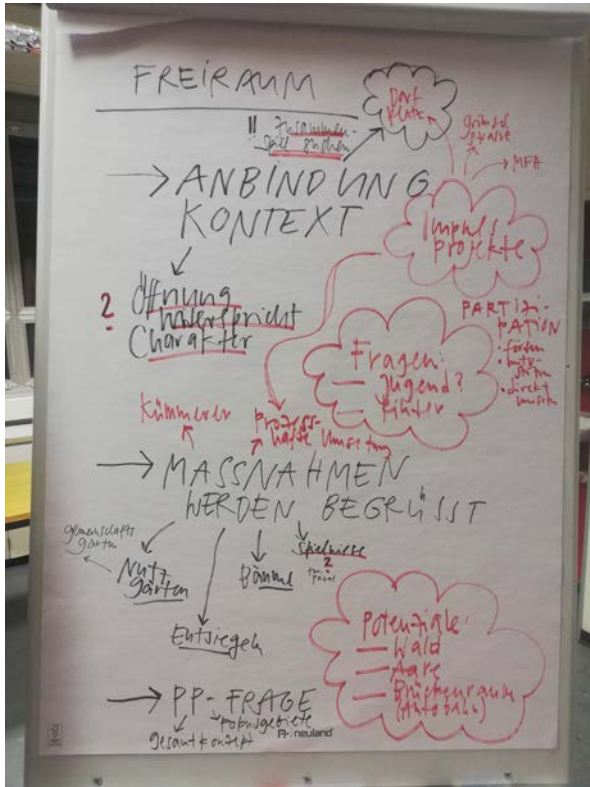 FREIRAUM
!! Zusammen-
spiel suchen
Dorf
platz
Grimsel
strasse
MFA
→ ANBINDUNG
KONTEXT
Impuls
projekte
? Öffnung
widerspricht
Charakter
PARTIZI-
PATION
• fördern
• direkt
Fragen:
— Jugend?
— Kinder
Kümmerer
Prozess-
hafte Umsetzung
→ MASSNAHMEN
WERDEN BEGRÜSST
gemeinschafts
gärten
Nutz
gärten
Bäume
Spielwiese
?
Entsiegeln
Potenziale:
— Wald
— Aare
— Brückenraum
(Autobahn)
→ PP-FRAGE
Fokusgebiete
gesamtkonzept
neuland